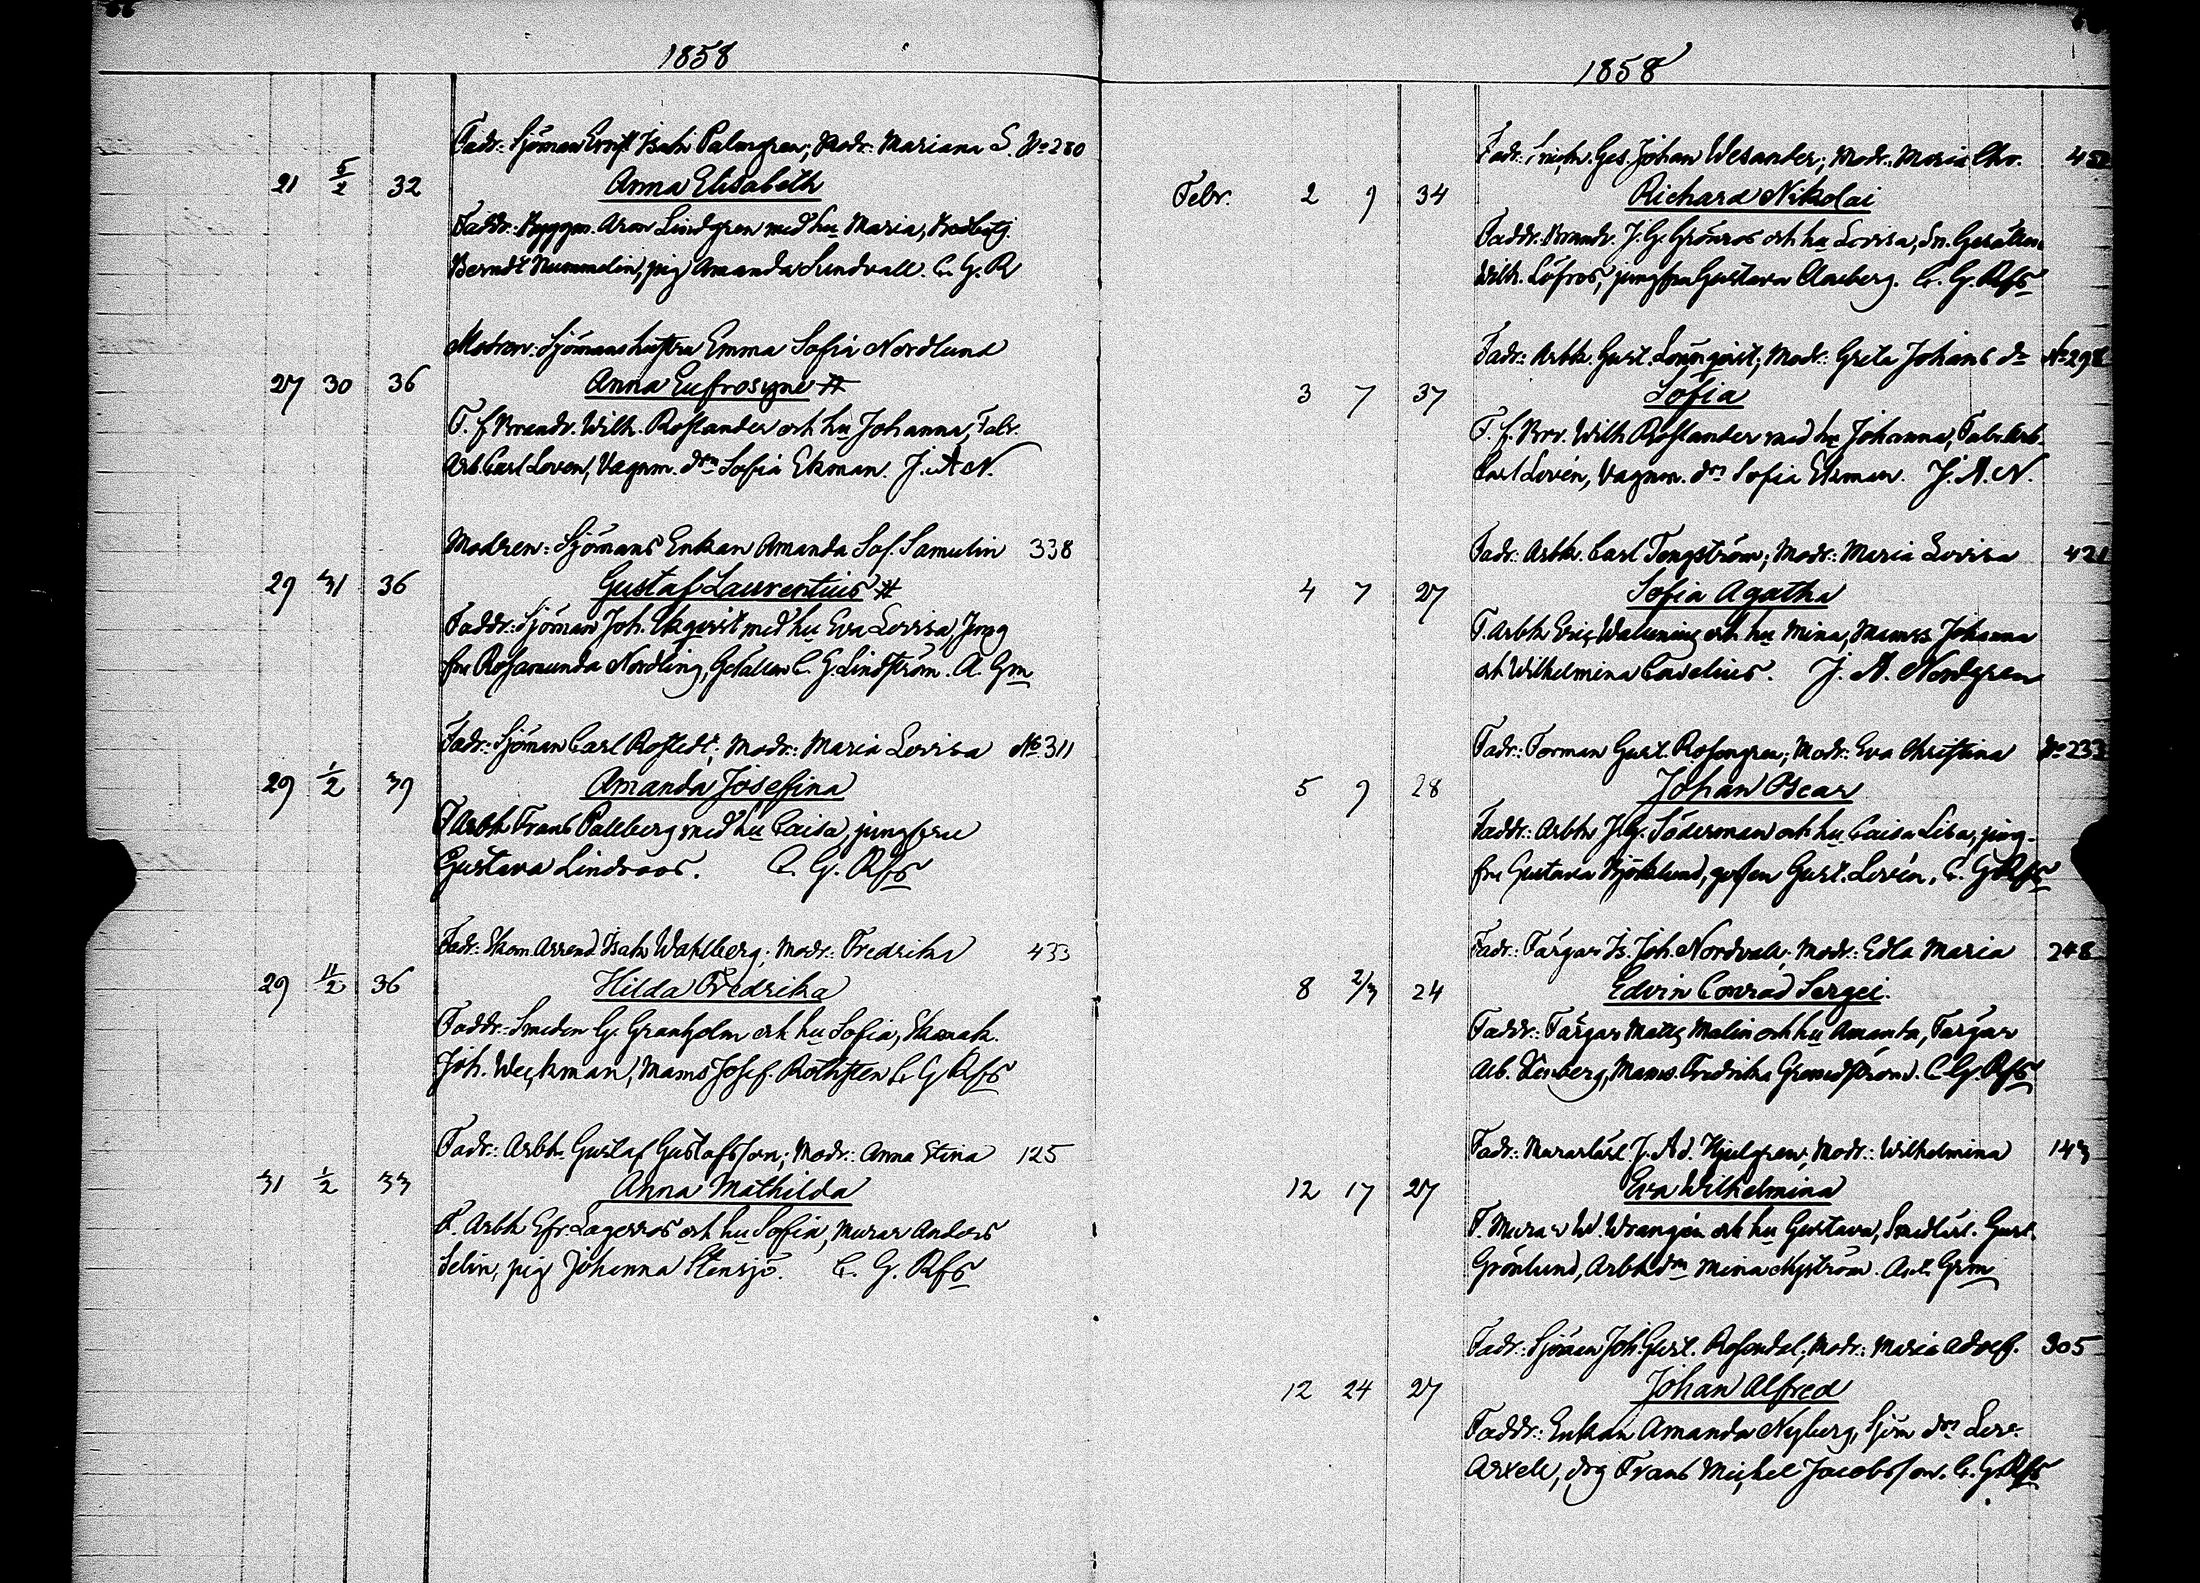 1858
Fadr: Sjöman Ernst Isak Palmgren; Modr: Mariana S. No 280
21 5/2 32 Anna Elisabeth
Faddr: Byggm. Aron Lindgren med hu Maria,
Berndt Nummelin, pig Amanda Sundvall. C. G. R
Modren: Sjömanshustru Emma Sofia Nordlund
27 30 36 Anna Eufrosyne #
F. f Brandv. Wilh. Roslander och hu Johanna, Fabr.
Arb. Carl Loven, Vagnm. drn Sofia Ekman. J. A N.
Modren: Sjömans Enkan Amanda Sof. Samulin 338
29 31 36 Gustaf Laurentius #
Faddr: Sjöman Joh. Ekqvist med hu Eva Lovisa, Jung
fru Rosamunda Nordling, Gesällen C. G. Lindström. A. Grm
Fadr: Sjöman Carl Rostedt; Modr: Maria Lovisa No 311
29 1/2 39 Amanda Josefina
F Arbk Frans Pallberg med hu Caisa, jungfru
Gustava Lindroos. C. G. Rfs
Fadr: Skom. Arrend. Isak Wahlberg; Modr: Fredrika 433
29 11/2 36 Hilda Fredrika
Faddr: Smeden G. Granholm och hu Sofia,
Joh. Weckman, Mams Josef. Rothsten C. G Rfs
Fadr: Arbk Gustaf Gustafsson; Modr: Anna Stina 125
31 1/2 33 Anna Mathilda
F. Arbk Efr. Lagerros och hu Sofia, Murar Anders
Selin, pig Johanna Stensjö. C. G. Rfs
1858
Fadr: Snick. Ges. Johan Wesander; Modr: Maria Chr. 452
Febr. 2 9 34 Richard Nikolai
Faddr: Brandv. J. G. Grönros och hu Lovisa, Sn. Gesällen
Wilh. Löfros, jungfru Gustava Ameberg. C. G. Rfs
Fadr: Arbk. Gust. Lönnqvist; Modr: Greta Johans dr No 298
3 7 37 Sofia
F. f. Brv. Wilh Roslander med hu Johanna, Fabr. Arb.
Carl Lovén, Vagnm. drn Sofia Ekman. J. A. N.
Fadr: Arbk. Carl Tengström; Modr: Maria Lovisa 421
4 7 27 Sofia Agatha
F. Arbk Eric Walmning och hu Mina, Mamss Johanna
och Wilhelmina Cavelius. J. A. Nordgren
Fadr: Forman Gust. Rosengren; Modr: Eva Christina No 233
5 9 28 Johan Oscar
Faddr: Arbk J. G. Söderman och hu Caisa Lisa, jung-
fru Gustava Björklund, gossen Gust. Lovén. C. G Rfs
Fadr: Färgar Is. Joh. Nordvall; Modr: Edla Maria 248
8 2/3 24 Edvin Conrad Sergei.
Faddr: Färgar Matts Malin och hu Amanta, Färgar
Arb. Vinberg, Mams. Fredrika Grundström. C G. Rfs
Fadr: Murarlärl. J. Ad. Hjelgren; Modr: Wilhelmina 143
12 17 27 Eva Wilhelmina
F. Murar W. Wrangén och hu Gustava, Smedlärl. Gust.
Grönlund, Arbk drn Mina Nyström. Axl. Grm
Fadr: Sjöman Joh. Gust. Rosendal; Modr: Maria Adolf. 305
12 24 27 Johan Alfred
Faddr: Enkan Amanda Nyberg, Sjöm drn Lov.
Axell, drg Frans Michel Jacobsson. C. G. Rfs